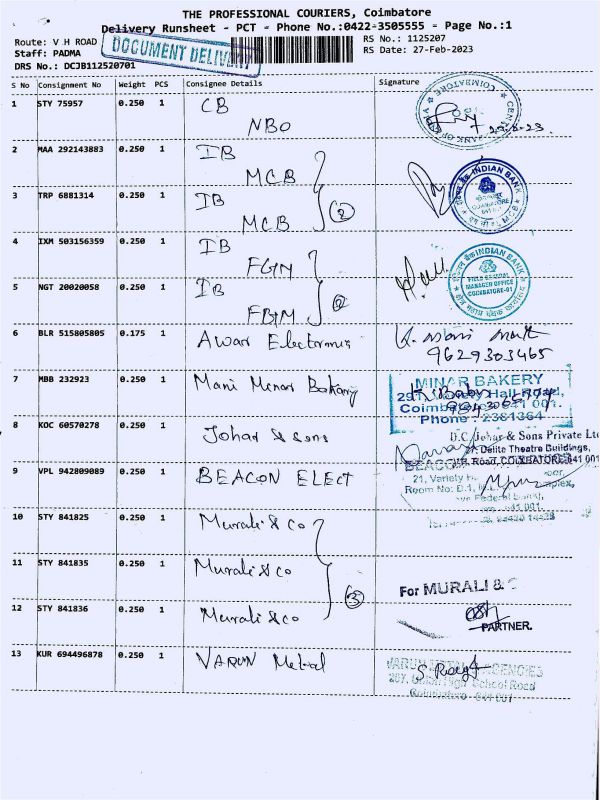 THE PROFESSIONAL COURIERS, Coimbatore
Delivery Runsheet - PCT - Phone No.:0422-3505555 - Page No.:1
Route: V H ROAD
Staff: PADMA
DRS No.: DCJB112520701
DOCUMENT DELIVERY
RS No.: 1125207
RS Date: 27-Feb-2023
S No Consignment No Weight PCS Consignee Details Signature
1 STY 75957 0.250 1 CB
NBO
2 MAA 292143883 0.250 1 IB
MCB
3 TRP 6881314 0.250 1 IB
MCB (2)
INDIAN BANK
COIMBATORE
MCB
4 IXM 503156359 0.250 1 IB
FGM
5 NGT 20020058 0.250 1 IB
FGM
INDIAN BANK
FIELD GENERAL
MANAGER OFFICE
COIMBATORE-01
6 BLR 515805805 0.175 1 Awar Electronics
9629303465
7 MBB 232923 0.250 1 Mani Menar Bakary
MINAR BAKERY
291, Variety Hall Road,
Coimbatore-641 001.
Phone : 2381364
8 KOC 60570278 0.250 1 Johar & sons
D.C. Johar & Sons Private Ltd
27, Delite Theatre Buildings,
V.H. Road, COIMBATORE-641 001
9 VPL 942809089 0.250 1 BEACON ELECT
BEACON
21, Variety
Room No: D.1,
10 STY 841825 0.250 1 Murali & co
11 STY 841835 0.250 1 Murali & co (3)
For MURALI &
12 STY 841836 0.250 1 Murali & co
PARTNER.
13 KUR 694496878 0.250 1 VARUN Metal
VARUN METAL AGENCIES
High School Road
Coimbatore - 641 001